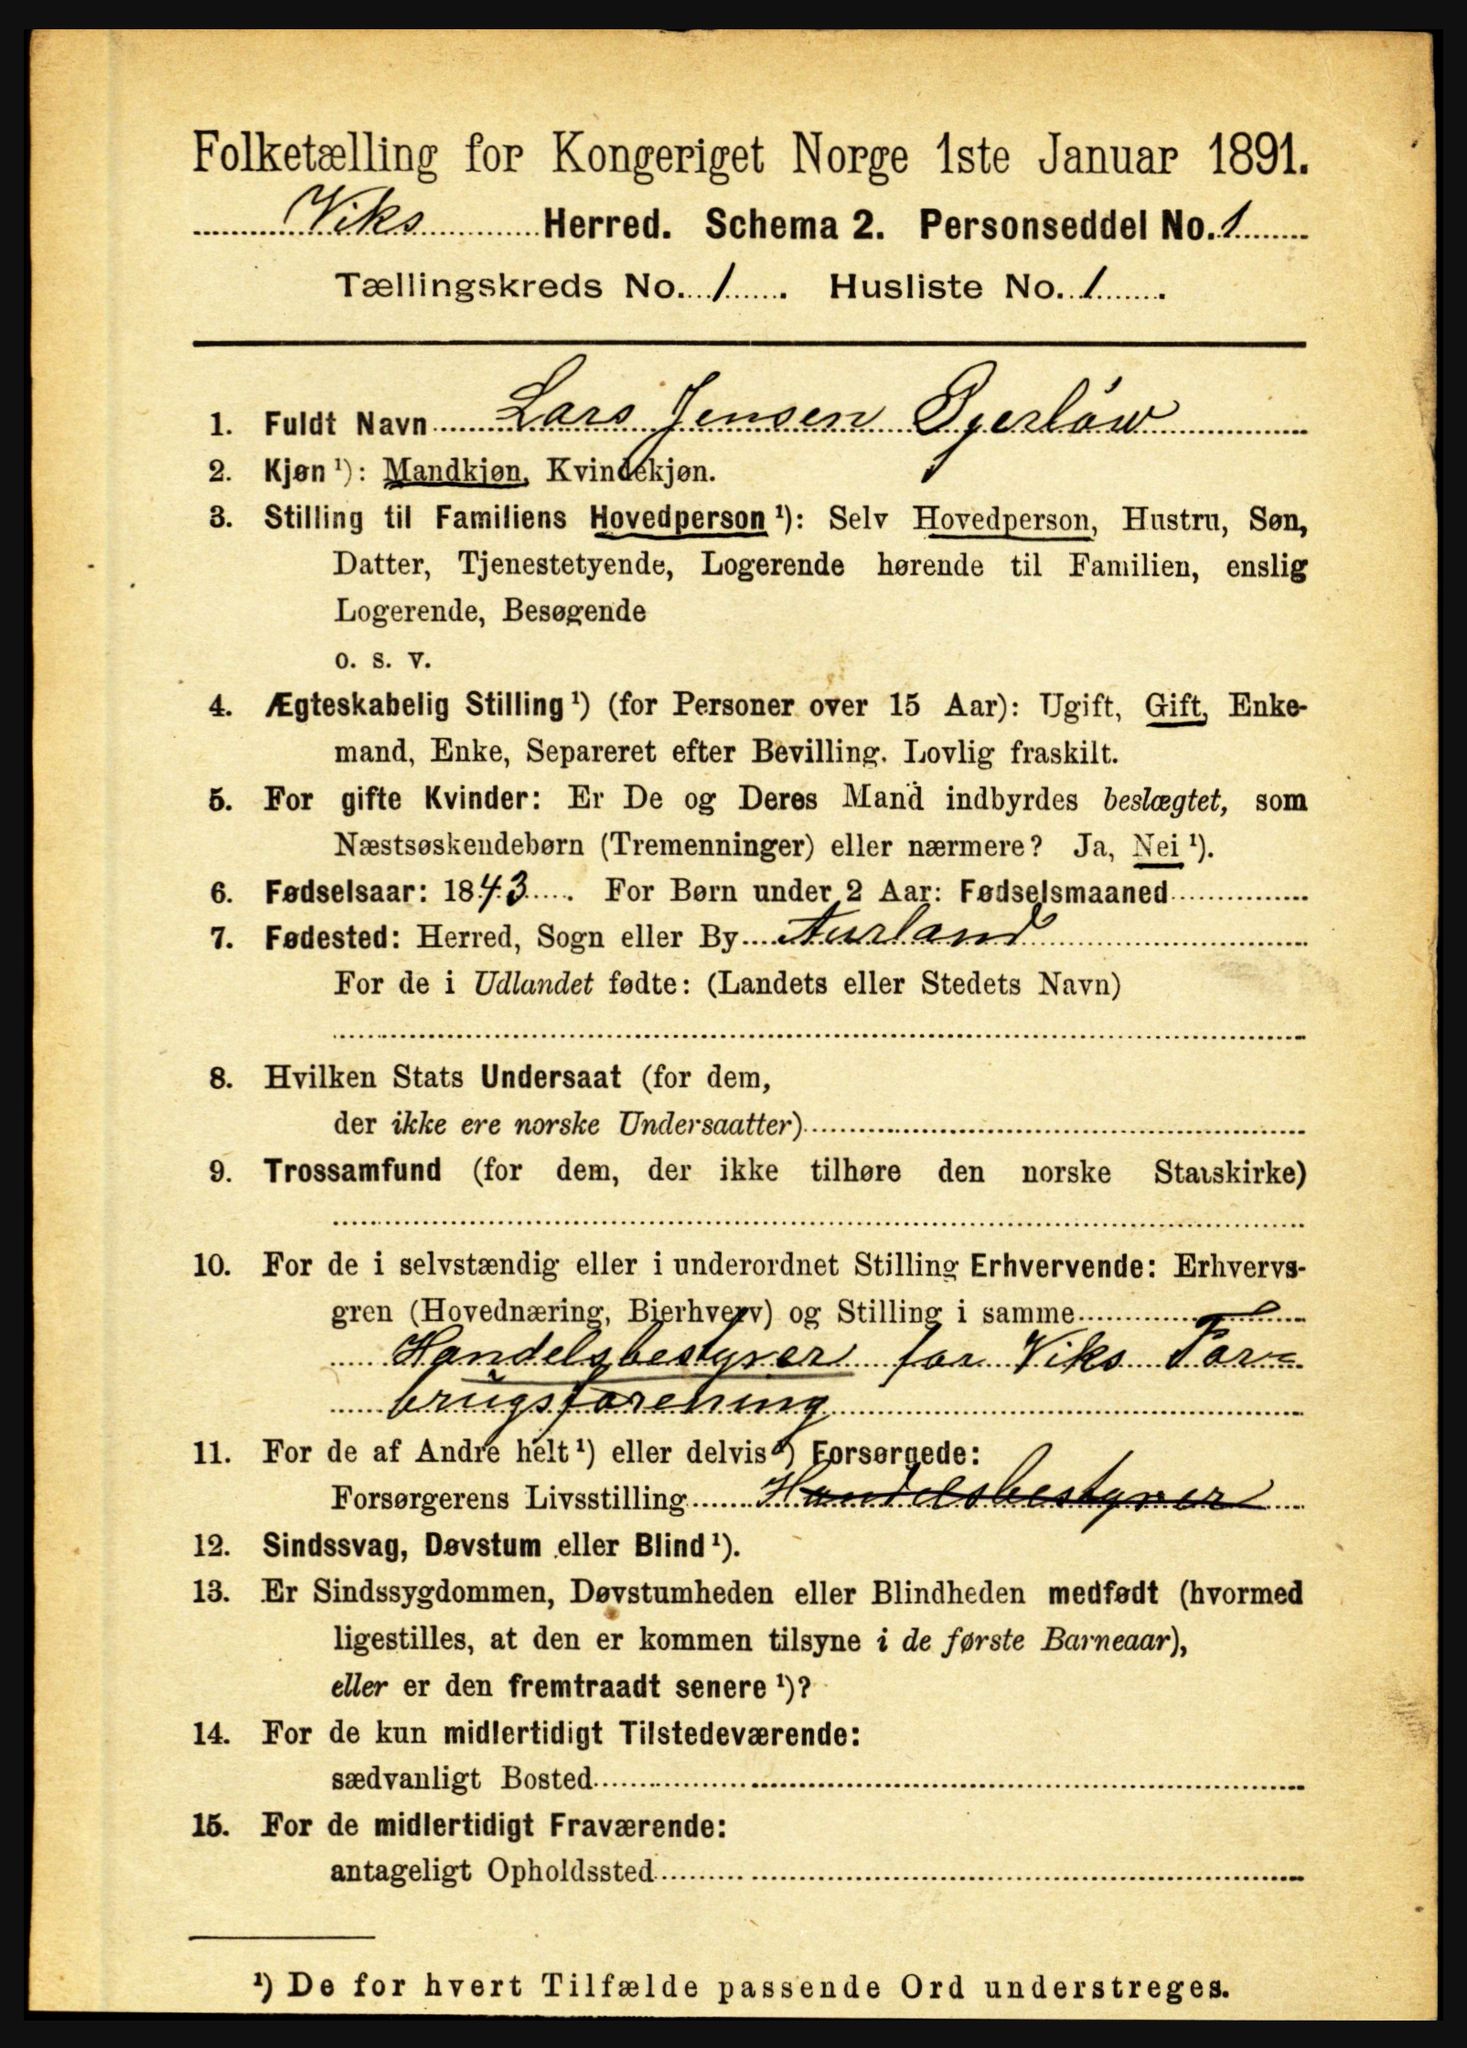 Folketælling for Kongeriget Norge 1ste Januar 1891.
Viks Herred. Schema 2. Personseddel No. 1
Tællingskreds No. 1. Husliste No. 1.
1. Fuldt Navn Lars Jensen
2. Kjøn ¹): Mandkjøn, Kvindekjøn.
3. Stilling til Familiens Hovedperson ¹): Selv Hovedperson, Hustru, Søn,
Datter, Tjenestetyende, Logerende hørende til Familien, enslig
Logerende, Besøgende
o. s. v.
4. Ægteskabelig Stilling ¹) (for Personer over 15 Aar): Ugift, Gift, Enke-
mand, Enke, Separeret efter Bevilling. Lovlig fraskilt.
5. For gifte Kvinder: Er De og Deres Mand indbyrdes beslægtet, som
Næstsøskendebørn (Tremenninger) eller nærmere? Ja, Nei ¹).
6. Fødselsaar: 1843. For Børn under 2 Aar: Fødselsmaaned
7. Fødested: Herred, Sogn eller By Aurland
For de i Udlandet fødte: (Landets eller Stedets Navn)
8. Hvilken Stats Undersaat (for dem,
der ikke ere norske Undersaatter)
9. Trossamfund (for dem, der ikke tilhøre den norske Statskirke)
10. For de i selvstændig eller i underordnet Stilling Erhvervende: Erhvervs-
gren (Hovednæring, Bierhverv) og Stilling i samme
Handelsbestyrer for Viks For-
brugsforening
11. For de af Andre helt ¹) eller delvis ¹) Forsørgede:
Forsørgerens Livsstilling Handelsbestyrer
12. Sindssvag, Døvstum eller Blind ¹).
13. Er Sindssygdommen, Døvstumheden eller Blindheden medfødt (hvormed
ligestilles, at den er kommen tilsyne i de første Barneaar),
eller er den fremtraadt senere ¹)?
14. For de kun midlertidigt Tilstedeværende:
sædvanligt Bosted
15. For de midlertidigt Fraværende:
antageligt Opholdssted
¹) De for hvert Tilfælde passende Ord understreges.